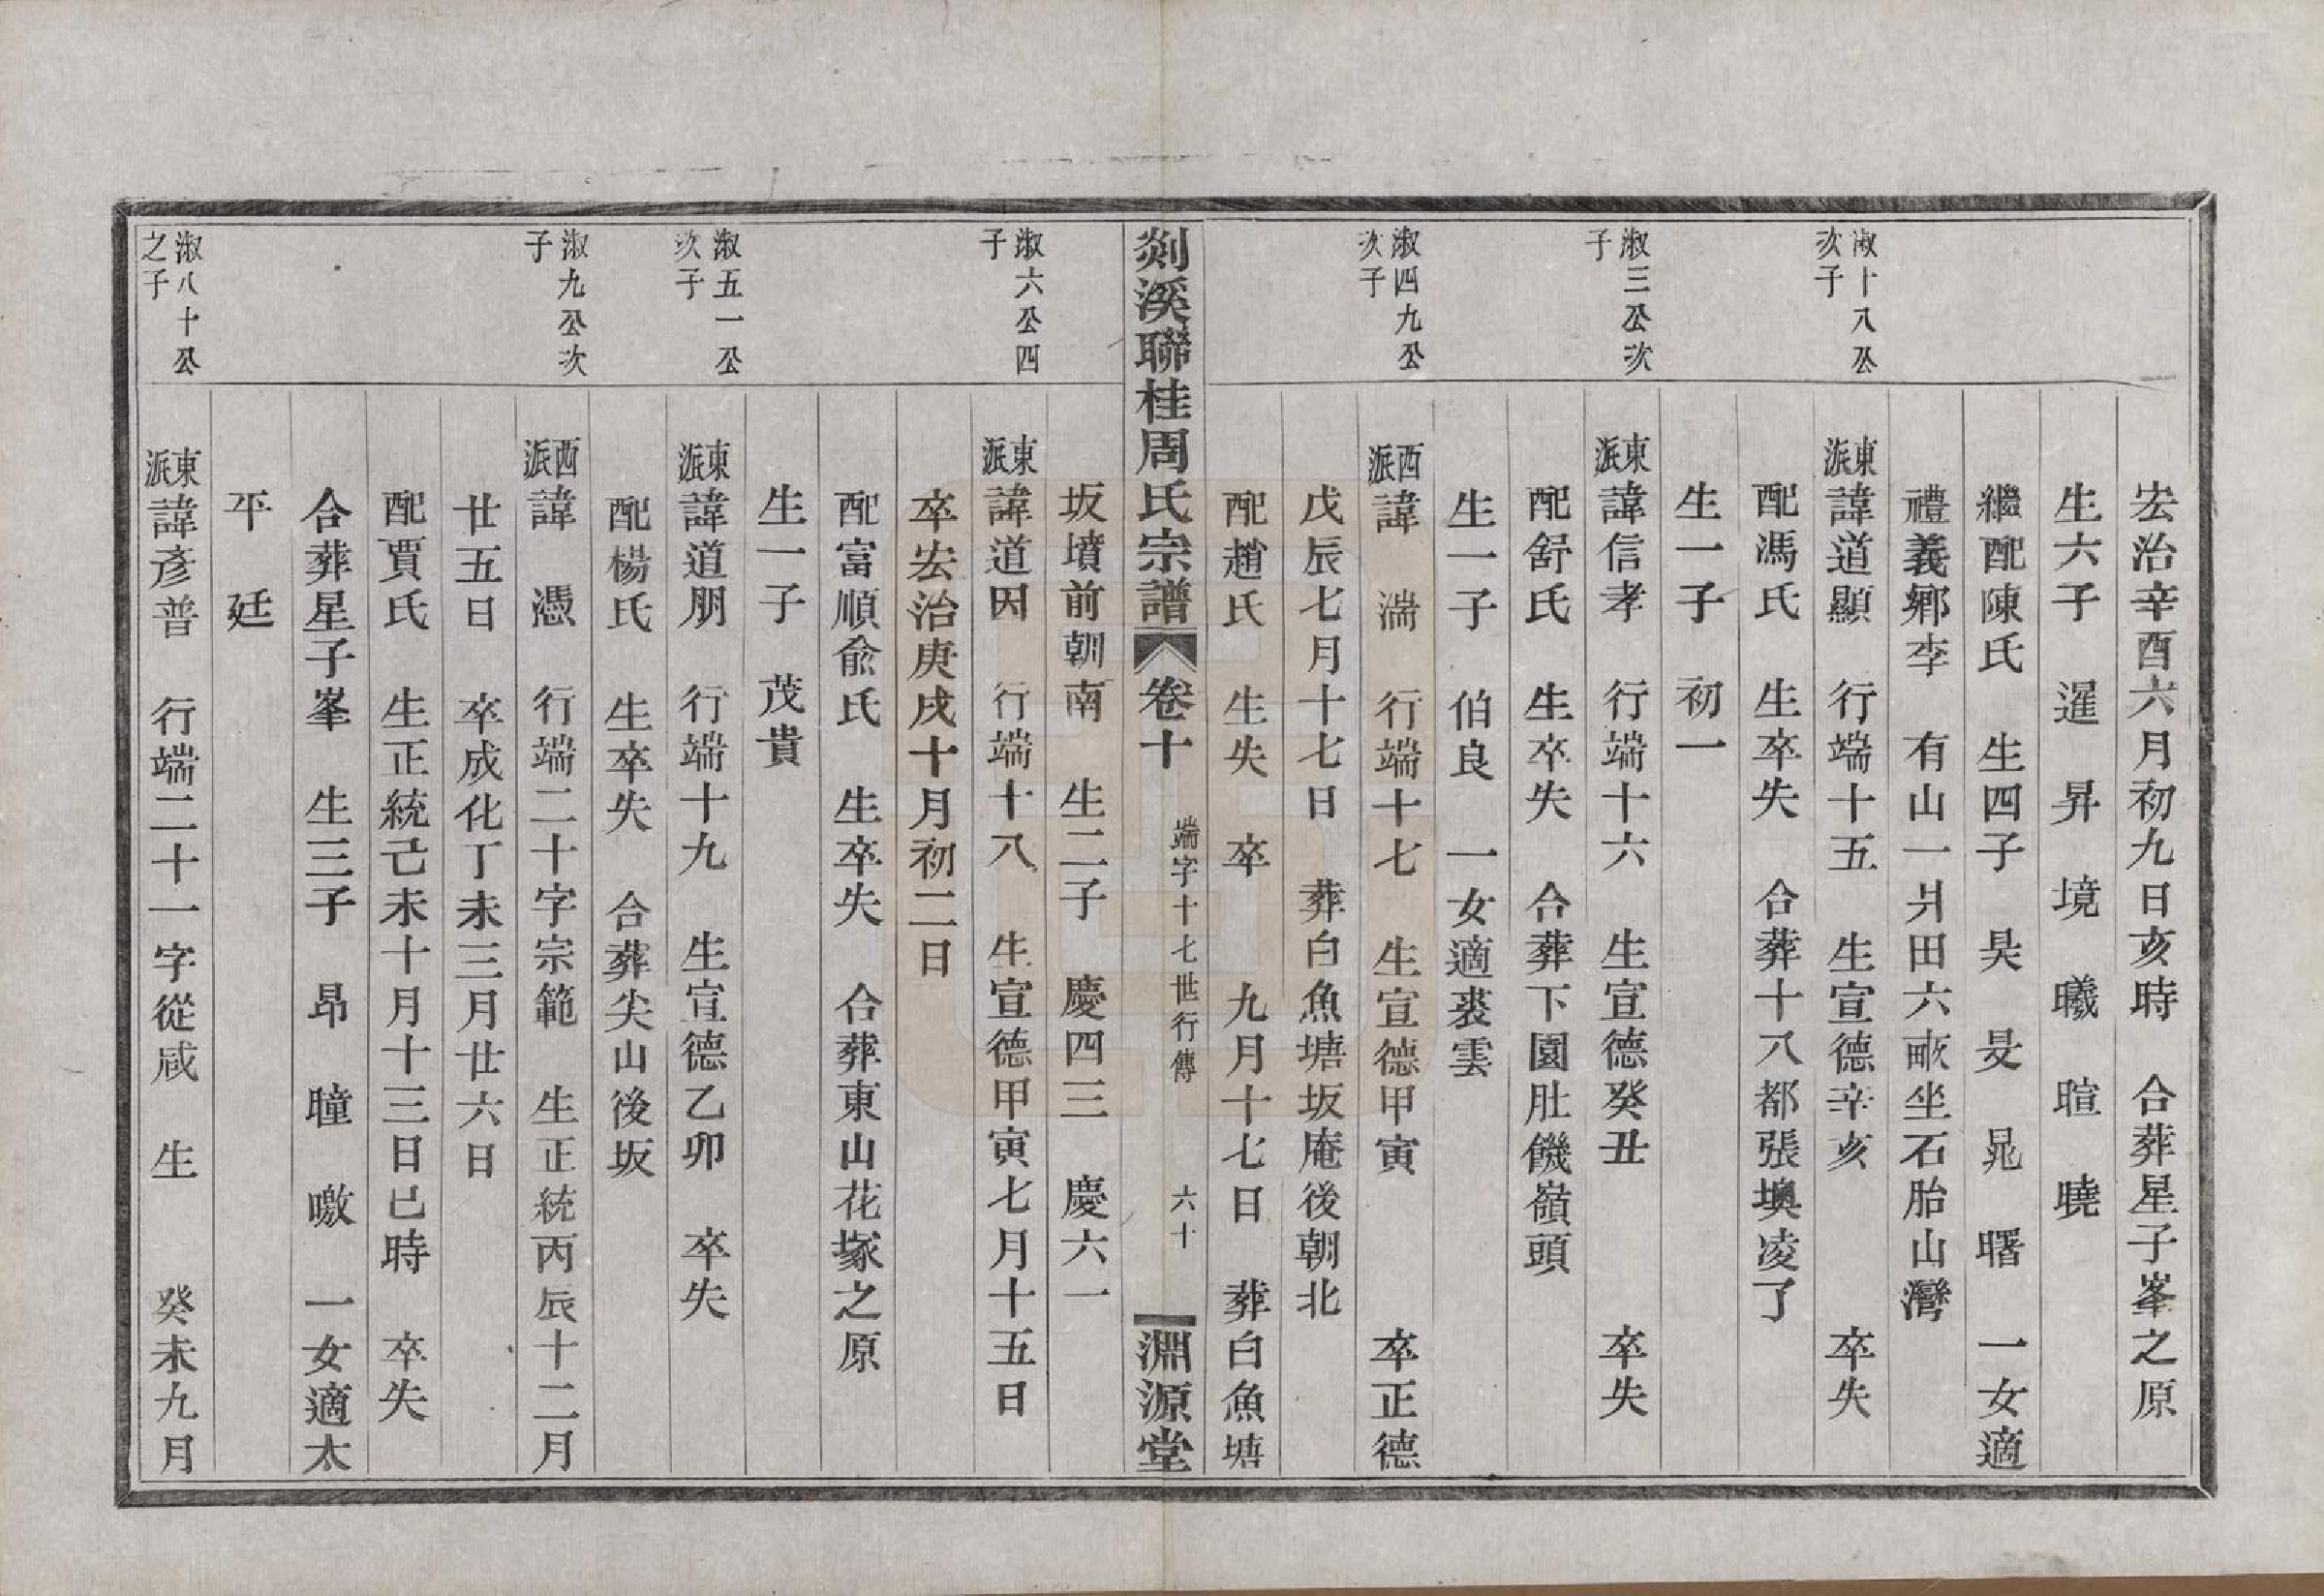 宏治辛酉六月初九日亥時　合葬星子峯之原
生六子　暹　昇　境　曦　暄　曉
繼配陳氏　生四子　昊　旻　晁　曙　一女適
禮義鄉李　有山一爿田六畝坐石胎山灣
淑十八公
次子
東派諱道顯　行端十五　生宣德辛亥　卒失
配馮氏　生卒失　合葬十八都張墺凌了
生一子　初一
淑三公次
子
東派諱信孝　行端十六　生宣德癸丑　卒失
配舒氏　生卒失　合葬下園肚饑嶺頭
生一子　伯良　一女適裘雲
淑四九公
次子
西派諱　湍　行端十七　生宣德甲寅　卒正德
戊辰七月十七日　葬白魚塘坂庵後朝北
配趙氏　生失　卒　九月十七日　葬白魚塘
剡溪聯桂周氏宗譜　卷十　端字十七世行傳　六十　淵源堂
坂墳前朝南　生二子　慶四三　慶六一
淑六公四
子
東派諱道因　行端十八　生宣德甲寅七月十五日
卒宏治庚戌十月初二日
配富順俞氏　生卒失　合葬東山花塚之原
生一子　茂貴
淑五一公
次子
東派諱道朋　行端十九　生宣德乙卯　卒失
配楊氏　生卒失　合葬尖山後坂
淑九公次
子
西派諱　憑　行端二十字宗範　生正統丙辰十二月
廿五日　卒成化丁未三月廿六日
配賈氏　生正統己未十月十三日巳時　卒失
合葬星子峯　生三子　昂　曈　曒　一女適太
平　廷
淑八十公
之子
東派諱彥普　行端二十一字從咸　生　癸未九月